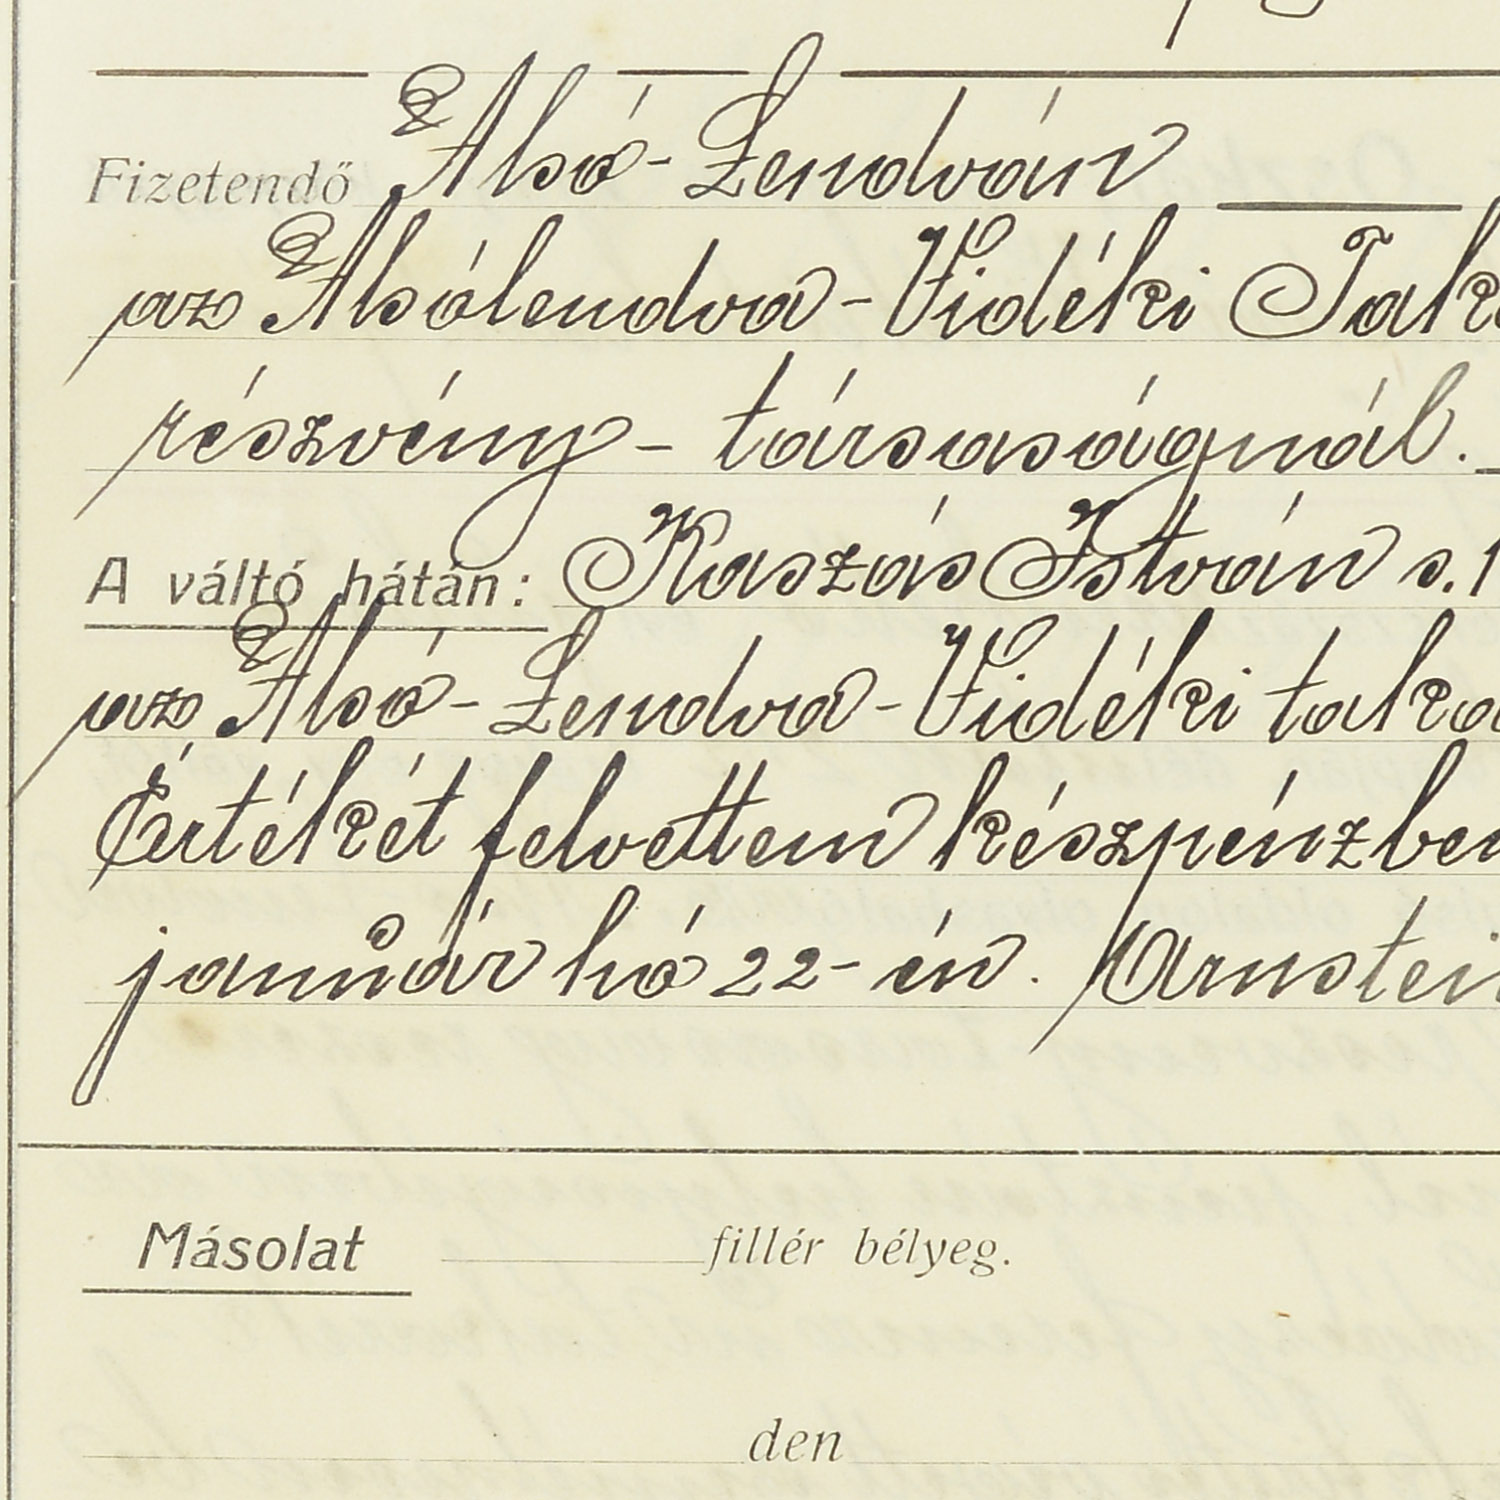 Fizetendő Alsó-Lendván
az Alsólendva-Vidéki Tak
részvény-társaságnál.
A váltó hátán: Kaszás István s. 
az Alsó-Lendva-Vidéki taka
Értékét felvettem készpénzben
január hó 22-én. Arnstein
Másolat fillér bélyeg.
den